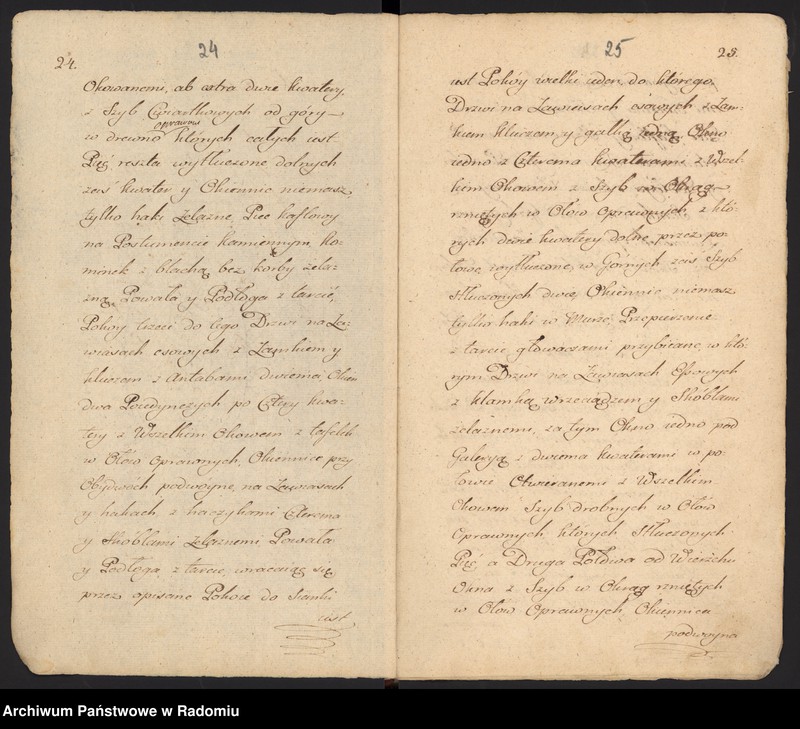 24.
24
Okowanemi, ab extra dwie kwatery
z Szyb Cwiartkowych od góry
oprawów
w drewno których całych iest
Pięć reszta wytłuczone dolnych
zaś kwater y Okiennic niemasz
tylko haki żelazne, Piec kaflowy
na Postumencie kamiennym, ko-
minek z blachą bez korby żelaz-
zną, Powała y Podłoga z tarcic,
Pokoy trzeci do tego Drzwi na Za-
wiasach esowych z Zamkiem y
kluczem z Antabami dwiema, Okien
dwa Poiedynczych po Cztery kwa-
tery z Wszelkim Okowem z tafelek
w Ołów Oprawnych, Okiennice przy
Obydwóch podwoyne, na Zawiasach
y hakach, z haczykami Czterema
y Skoblami żelaznemi Powała
y Podłoga z tarcic, wracaiąc się
przez opisane Pokoie do Sionki
iest
25
25.
iest Pokoy wielki ieden, do którego
Drzwi na Zawiasach esowych z Zam-
kiem kluczem, y gałką iedną, Okno
iedno z Czterema kwaterami z Wszel-
kim Okowem z Szyb w Okrąg
rzniętych w Ołów Oprawnych, z któ-
rych dwie kwatery dolne, przez po-
łowę wytłuczone, w Górnych zaś Szyb
Stłuczonych dwie, Okiennic niemasz
tylko haki w Murze, Przepierzenie
z tarcic głowaczami przybieane, w któ-
rym Drzwi na Zawiasach Essowych
z klamką wrzeciądzem, y Skóblami
żelaznemi, za tym Okno iedno pod
Galeryą z dwiema kwaterami w po-
łowie Otwieranemi z Wszelkim
Okowem Szyb drobnych w Ołów
Oprawnych, których Stłuczonych
Pięć a Druga Połowa od Wierzchu
Okna z Szyb w Okrąg rzniętych
w Ołów Oprawnych Okiennica
podwoyna
Archiwum Państwowe w Radomiu